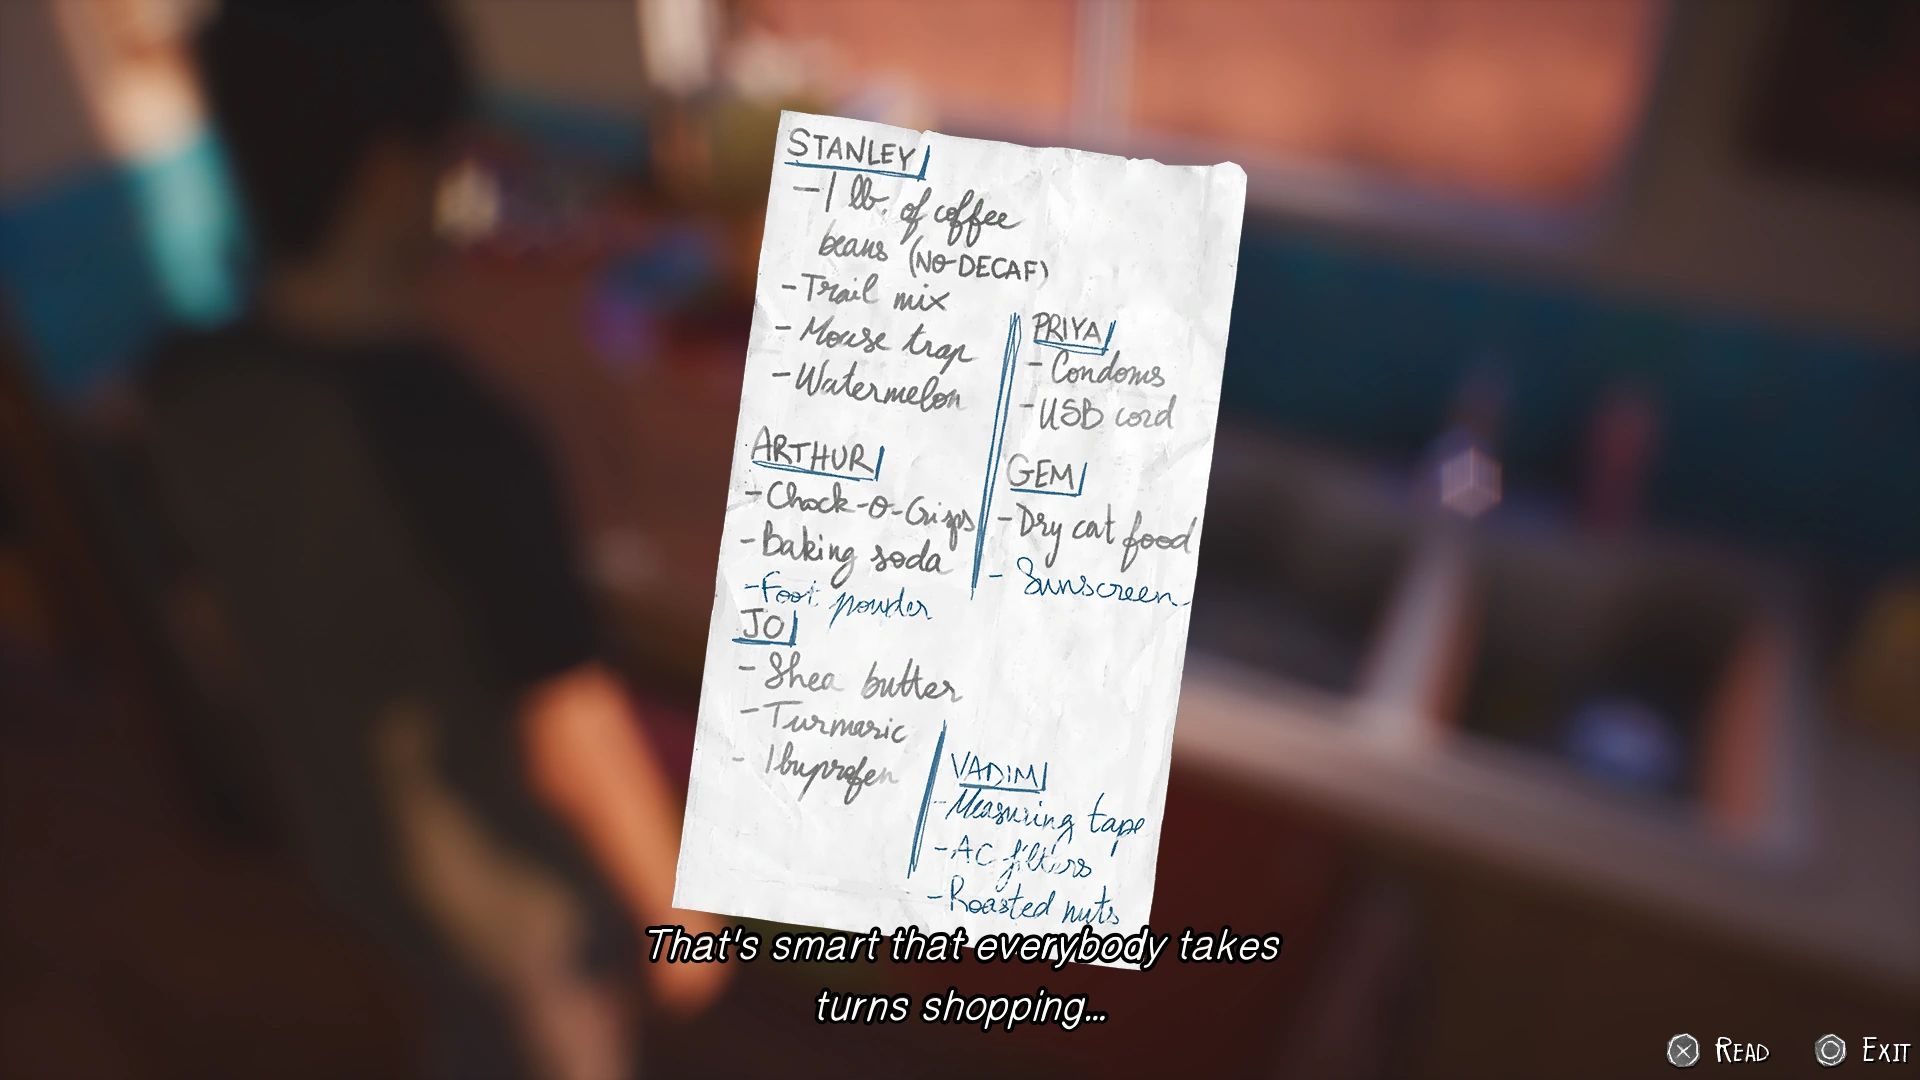 STANLEY
- 1 lb. of coffee
beans (NO DECAF)
- Trail mix
- Mouse trap
- Watermelon
ARTHUR
- Chock-O-Crisps
- Baking soda
- Foot powder
JO
- Shea butter
- Turmeric
- Ibuprofen
PRIYA
- Condoms
- USB cord
GEM
- Dry cat food
- Sunscreen
VADIM
- Measuring tape
- AC filters
- Roasted nuts
That's smart that everybody takes
turns shopping...
READ
EXIT